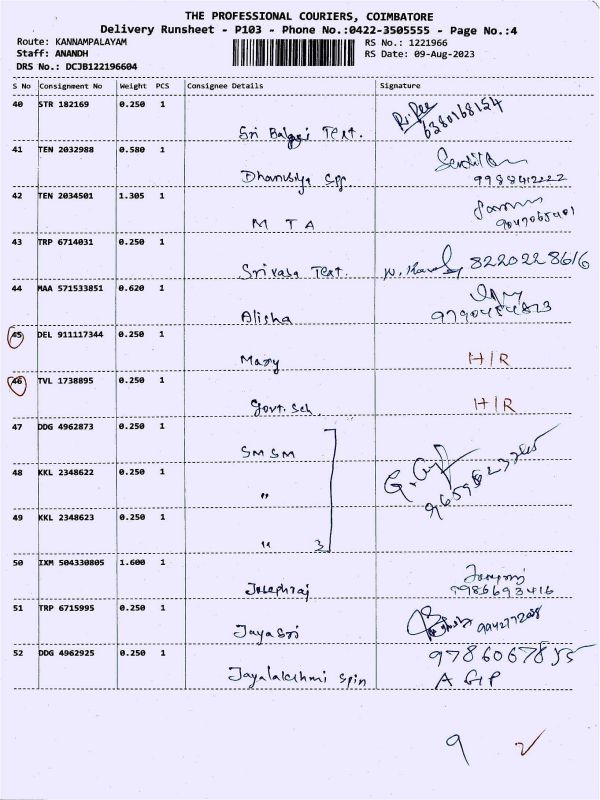 THE PROFESSIONAL COURIERS, COIMBATORE
Delivery Runsheet - P103 - Phone No.:0422-3505555 - Page No.:4
Route: KANNAMPALAYAM
RS No.: 1221966
Staff: ANANDH
RS Date: 09-Aug-2023
DRS No.: DCJB122196604
S No Consignment No Weight PCS Consignee Details Signature
40 STR 182169 0.250 1
Sri Balaji Text. 6380168154
41 TEN 2032988 0.580 1
Dhanusiya Spg.
42 TEN 2034501 1.305 1
M T A
43 TRP 6714031 0.250 1
Srivasa Text 8220228616
44 MAA 571533851 0.620 1
Alisha
45 DEL 911117344 0.250 1
Mary H/R
46 TVL 1738895 0.250 1
Govt. Sch. H/R
47 DDG 4962873 0.250 1
SMSM
48 KKL 2348622 0.250 1
"
49 KKL 2348623 0.250 1
" 3
50 IXM 504330805 1.600 1
Josephraj 9986693416
51 TRP 6715995 0.250 1
Jaya Sri
52 DDG 4962925 0.250 1
Jayalakshmi Spin 9786067855
A GP
9